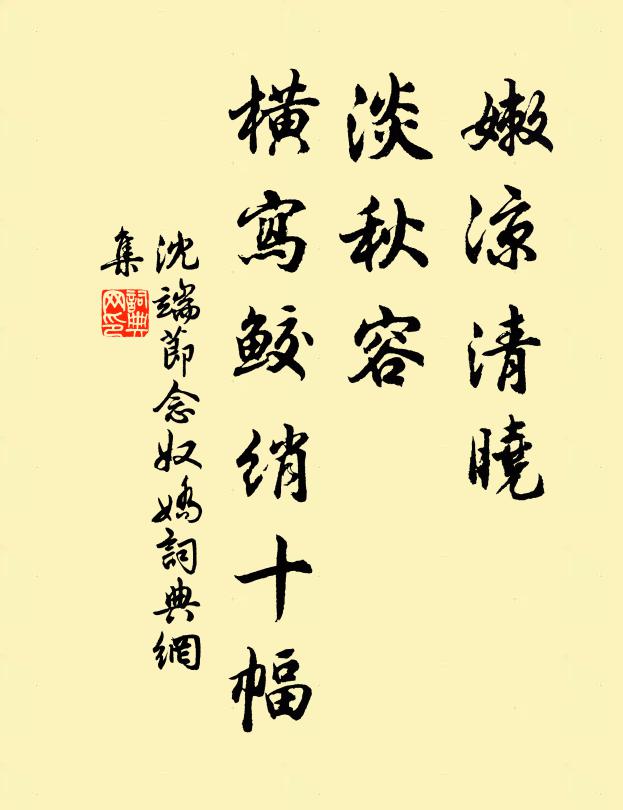 嫩凉清曉
淡秋容
橫寫鮫綃十幅
沈端節念奴嬌詞典網
集
詞典
网印